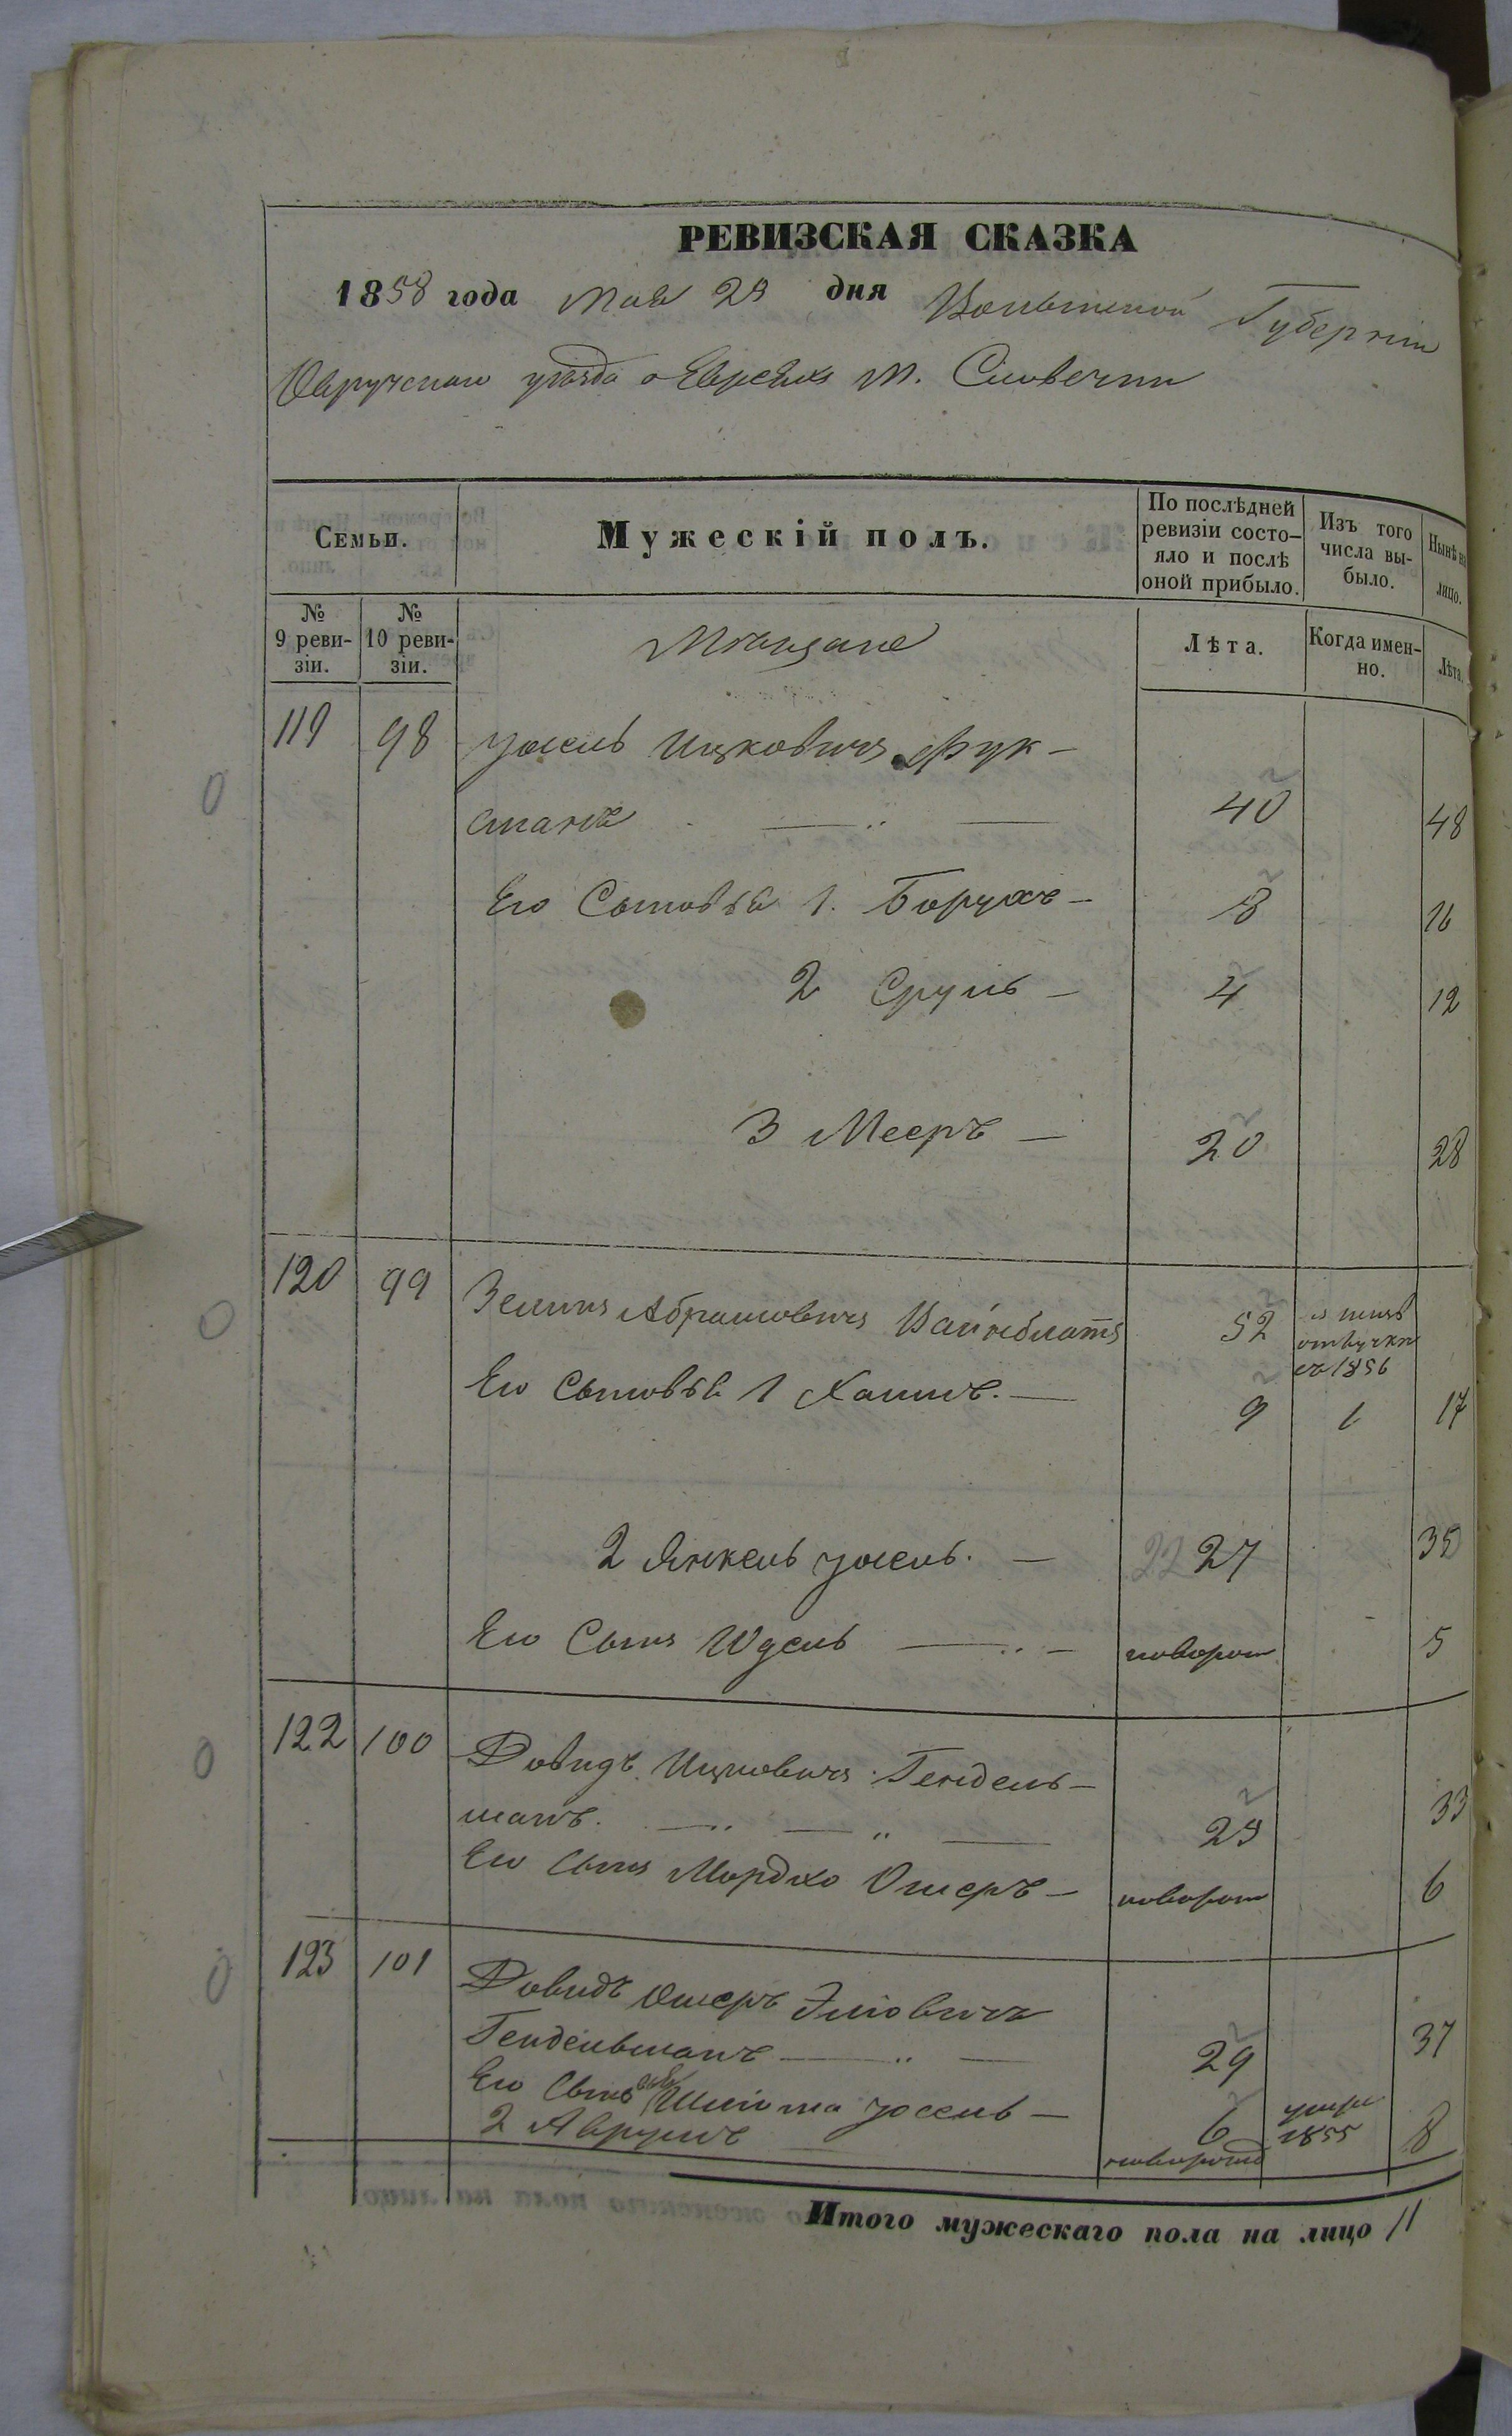 РЕВИЗСКАЯ СКАЗКА
1858 года Мая 29 дня Волынской Губернiи
Овручскаго уѣзда о Евреяхъ М. Словечни
Семьи.
Мужескiй полъ.
По послѣдней ревизiи состояло и послѣ оной прибыло.
Изъ того числа выбыло.
Нынѣ на лицо.
№ 9 ревизiи.
№ 10 ревизiи.
Мѣщане
Лѣта.
Когда именно.
Лѣта.
119 98 Уосель Ицковичъ Фук-
сманъ 40 48
Его Сыновья 1. Борухъ 8 16
2 Сруль 4 12
3 Мееръ 20 28
120 99 Зелигъ Абрамовичъ Вайнблатъ 52
отлучкѣ
съ 1856
Его Сыновья 1 Хаимъ. 9 1 17
2 Янкель Уосель. 22 27 35
Его Сынъ Юдель новорож 5
122 100 Довидъ Ицковичъ Гендель-
манъ. 25 33
Его Сынъ Мордко Ошеръ новорож 6
123 101 Довидъ Ошеръ Элiовичъ
Гендельманъ 29 37
Его Сынъ Шлiома Уосель 6 умре 1855
2 Аврумъ новорожд 8
Итого мужескаго пола на лицо 11